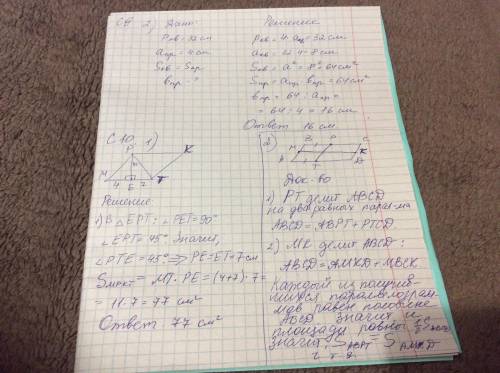 С9 2) Дано:
Pкв = 32 см
aпр = 4 см
Sкв = Sпр
bпр - ?
Решение
Pкв = 4·aкв = 32 см
aкв = 32:4 = 8 см
Sкв = a² = 8² = 64 см²
Sпр = aпр · bпр = 64 см²
bпр = 64 : aпр =
= 64 : 4 = 16 см
Ответ 16 см.
С10 1)
P K
M 4 E 7 T
Решение
1) В △EPT: ∠PET = 90°
∠EPT = 45° Значит,
∠PTE = 45° ⇒ PE = ET = 7 см
SMPKT = MT · PE = (4+7)·7 =
= 11·7 = 77 см²
Ответ 77 см²
2)
B P C
M K
A T D
Док-во
1) PT делит ABCD
на два равных парал-ма
ABCD = ABPT + PTCD
2) MK делит ABCD:
ABCD = AMKD + MBCK
Каждый из получив-
шихся параллелограм-
мов равен половине
ABCD значит и
площади равны
Значит, SABPT = SAMKD
ч. т. д.